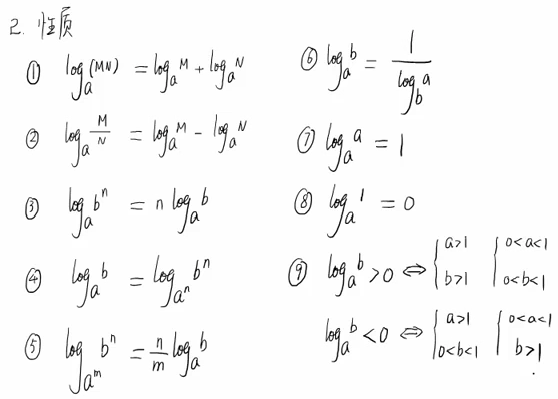 2. 性质
① log_a^(MN) = log_a^M + log_a^N
② log_a^(M/N) = log_a^M - log_a^N
③ log_a b^n = n log_a^b
④ log_a^b = log_{a^n} b^n
⑤ log_{a^m} b^n = n/m log_a^b
⑥ log_a^b = 1/log_b^a
⑦ log_a^a = 1
⑧ log_a^1 = 0
⑨ log_a^b > 0 ⇔ { a>1 b>1 { 0<a<1 0<b<1
log_a^b < 0 ⇔ { a>1 0<b<1 { 0<a<1 b>1